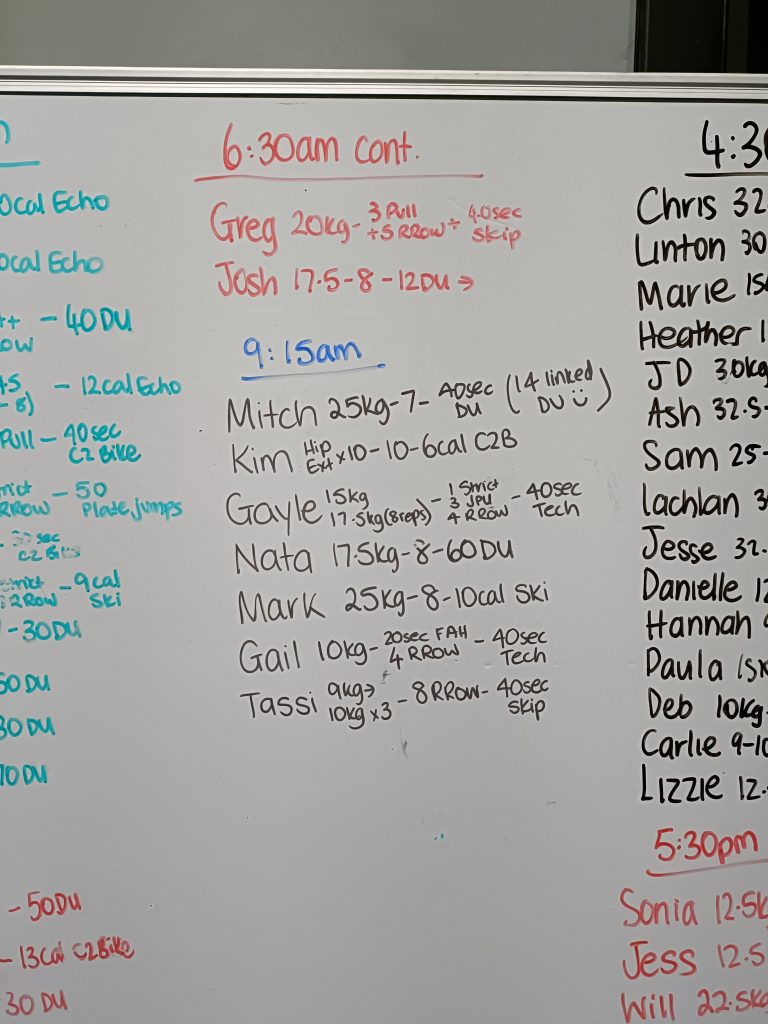 0cal Echo
0cal Echo
++ - 40DU
ROW
+5 - 12cal Echo
- 8)
Pull - 40sec
C2 Bike
Strict - 50
RROW Plate jumps
30sec
C2 Bike
Strict - 9cal
2 Row Ski
- 30DU
50 DU
30 DU
70 DU
- 50DU
- 13cal C2 Bike
30 DU
6:30am cont.
Greg 20kg - 3 Pull + 40sec
+5 RROW Skip
Josh 17.5 - 8 - 12DU →
9:15am
Mitch 25kg - 7 - 40sec (14 linked
DU DU ☺)
Kim Hip x10 - 10 - 6cal C2B
Ext
Gayle 15kg - 1 Strict - 40sec
17.5kg (8reps) 3 JPU Tech
4 RROW
Nata 17.5kg - 8 - 60DU
Mark 25kg - 8 - 10cal Ski
Gail 10kg - 20sec FAH - 40sec
4 RROW Tech
Tassi 9kg → - 8 RROW - 40sec
10kg x3 Skip
4:30
Chris 32
Linton 30
Marie 15
Heather 1
JD 30kg
Ash 32.5-
Sam 25-
Lachlan 3
Jesse 32.
Danielle 12
Hannah
Paula 15k
Deb 10kg-
Carlie 9-10
Lizzie 12.
5:30pm
Sonia 12.5k
Jess 12.5
Will 22.5kg